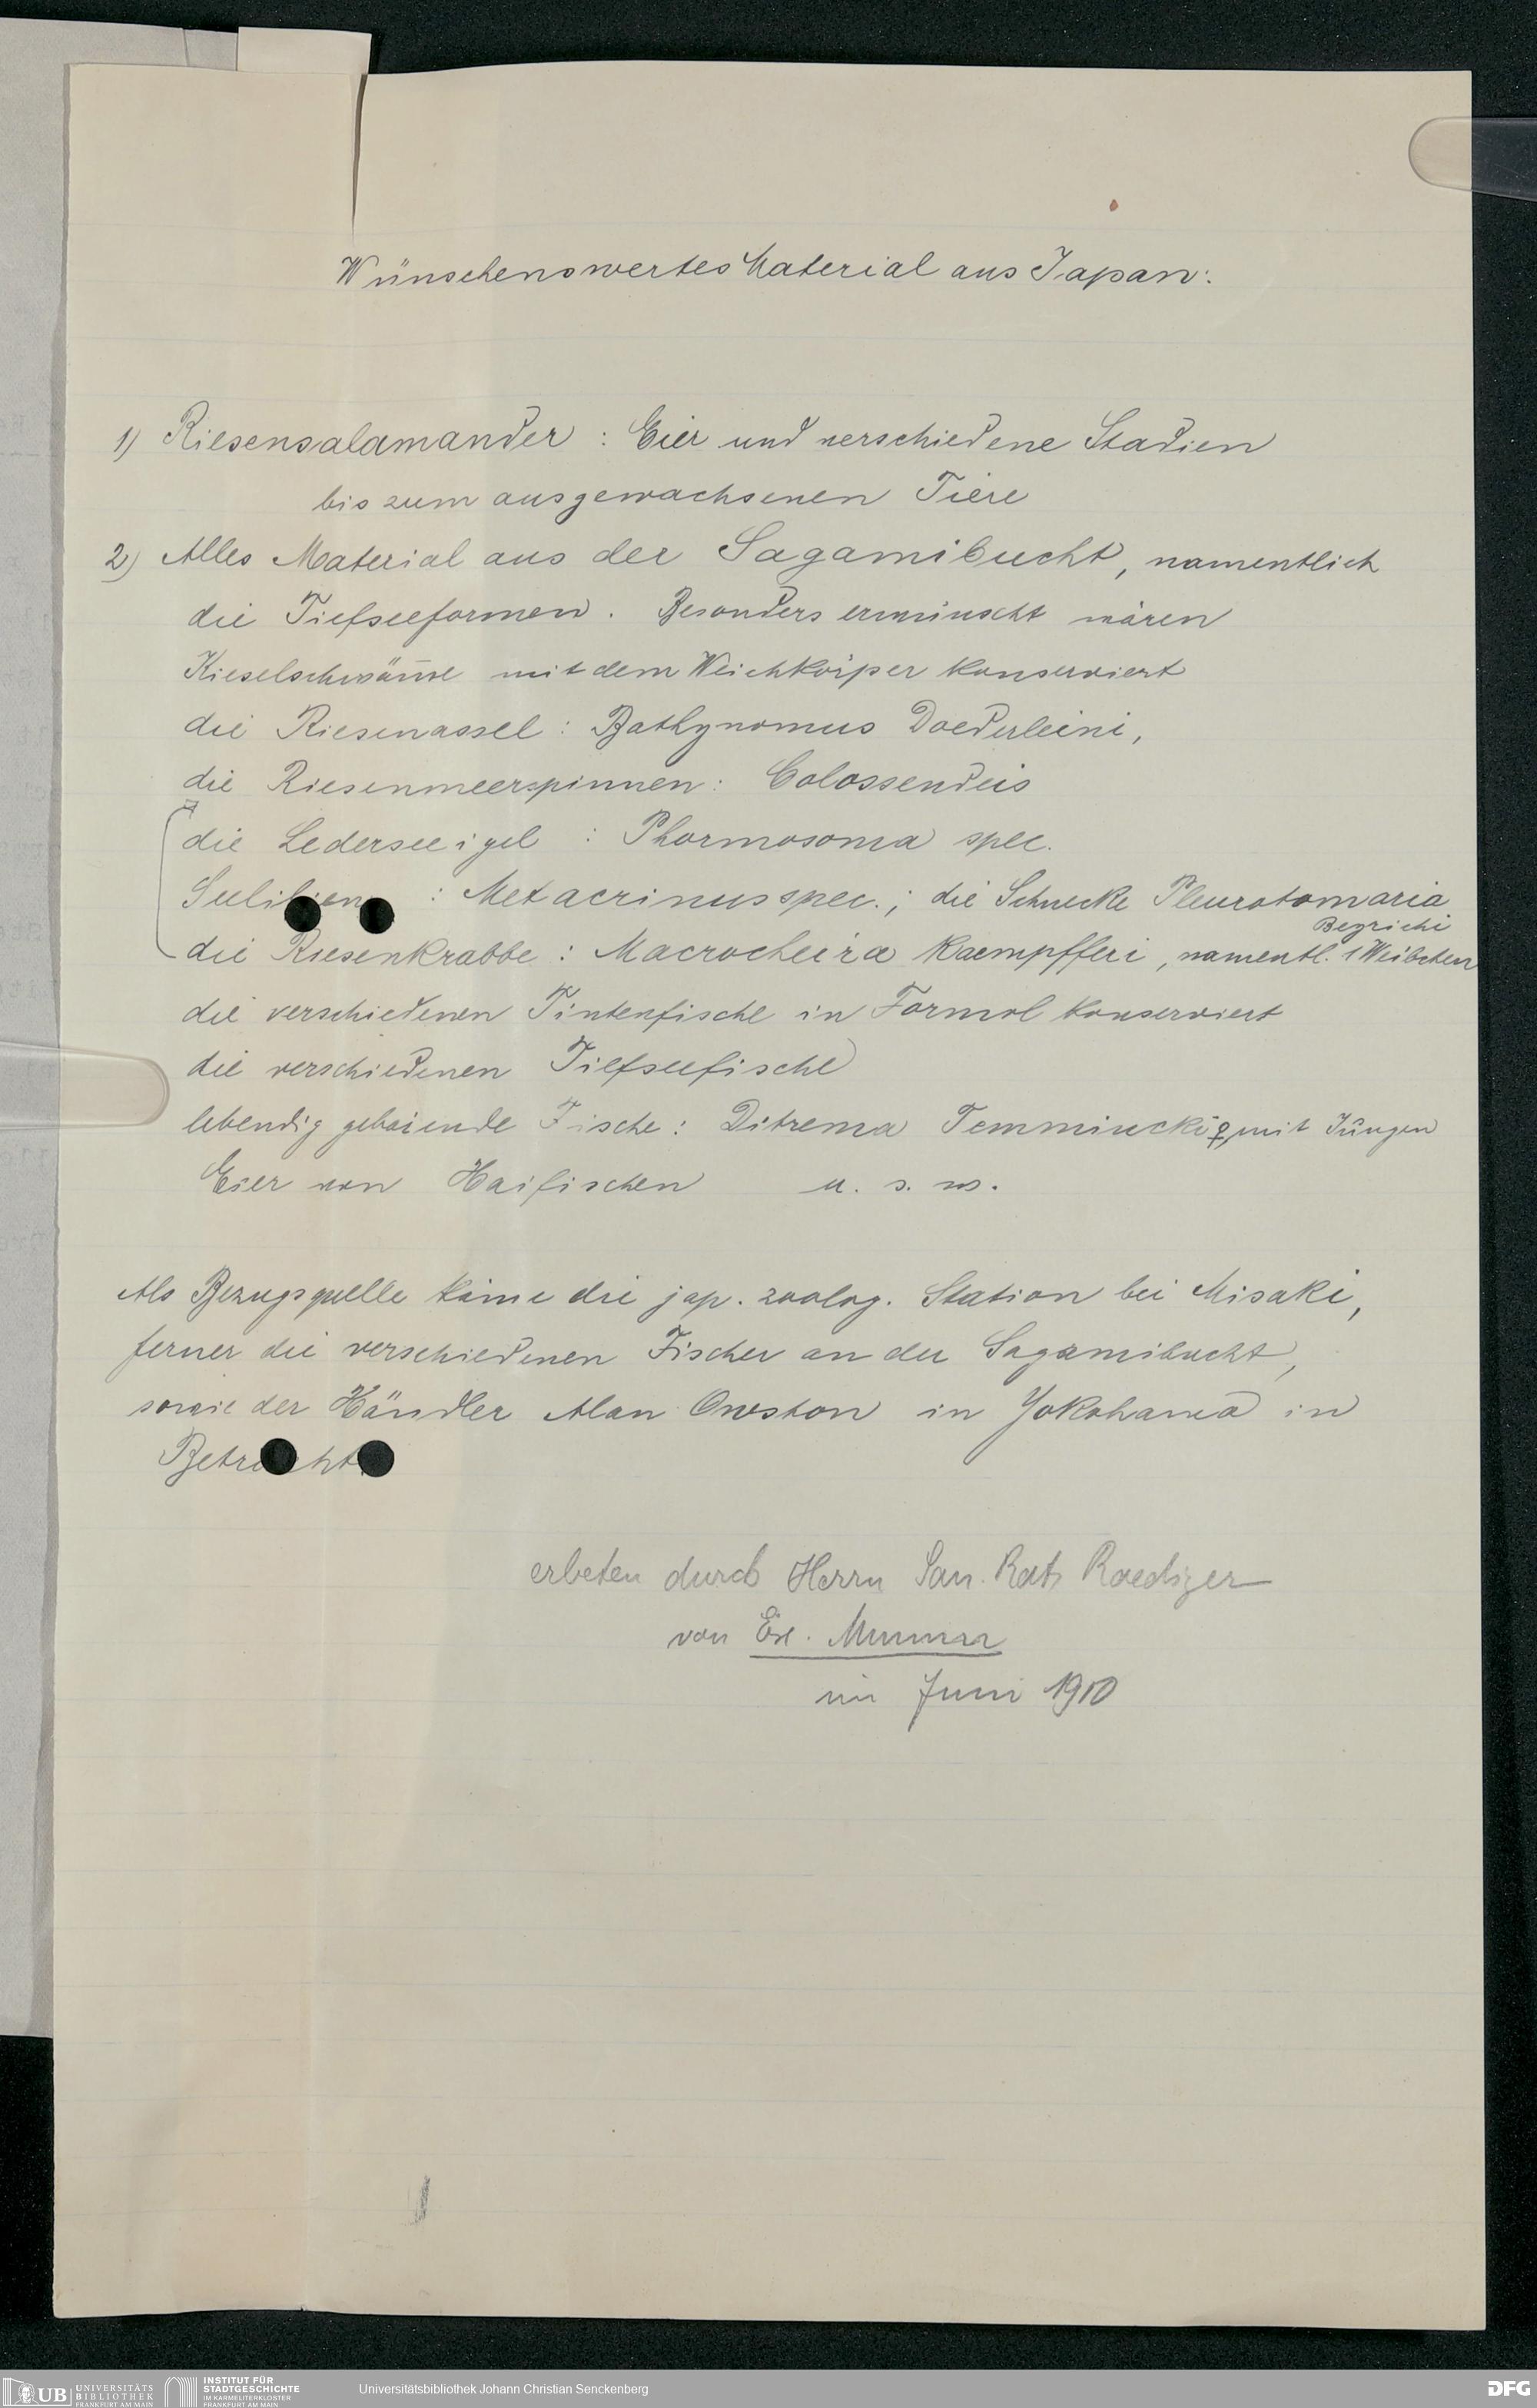 Wünschenswertes Material aus Japan:
1) Riesensalamander : Eier und verschiedene Stadien
bis zum ausgewachsenen Tiere
2) Alles Material aus der Sagamibucht, namentlich
die Tiefseeformen. Besonders erwünscht wären
Kieselschwäm̅e mit dem Weichkörper konserviert
die Riesenassel: Bathynomus Doederleini,
die Riesenmeerspinnen: Colossendeis
die Lederseeigel : Phormosoma spec.
Seelilien : Metacrinus spec.; die Schnecke Pleurotomaria
Beyrichi
die Riesenkrabbe : Macrocheira Kaempfferi, namentl. 1 Weibchen
die verschiedenen Tintenfische in Formol konserviert
die verschiedenen Tiefseefische
lebendig gebärende Fische: Ditrema Temmincki ♀ mit Jungen
Eier von Haifischen u. s. w.
Als Bezugsquelle käme die jap. zoolog. Station bei Misaki,
ferner die verschiedenen Fischer an der Sagamibucht,
sowie der Händler Alan Owston in Yokohama in
Betracht.
erbeten durch Herrn San. Rat Roediger
von Exz. Mumm
im Juni 1910
UB UNIVERSITÄTS
BIBLIOTHEK
FRANKFURT AM MAIN
INSTITUT FÜR
STADTGESCHICHTE
IM KARMELITERKLOSTER
FRANKFURT AM MAIN
Universitätsbibliothek Johann Christian Senckenberg
DFG